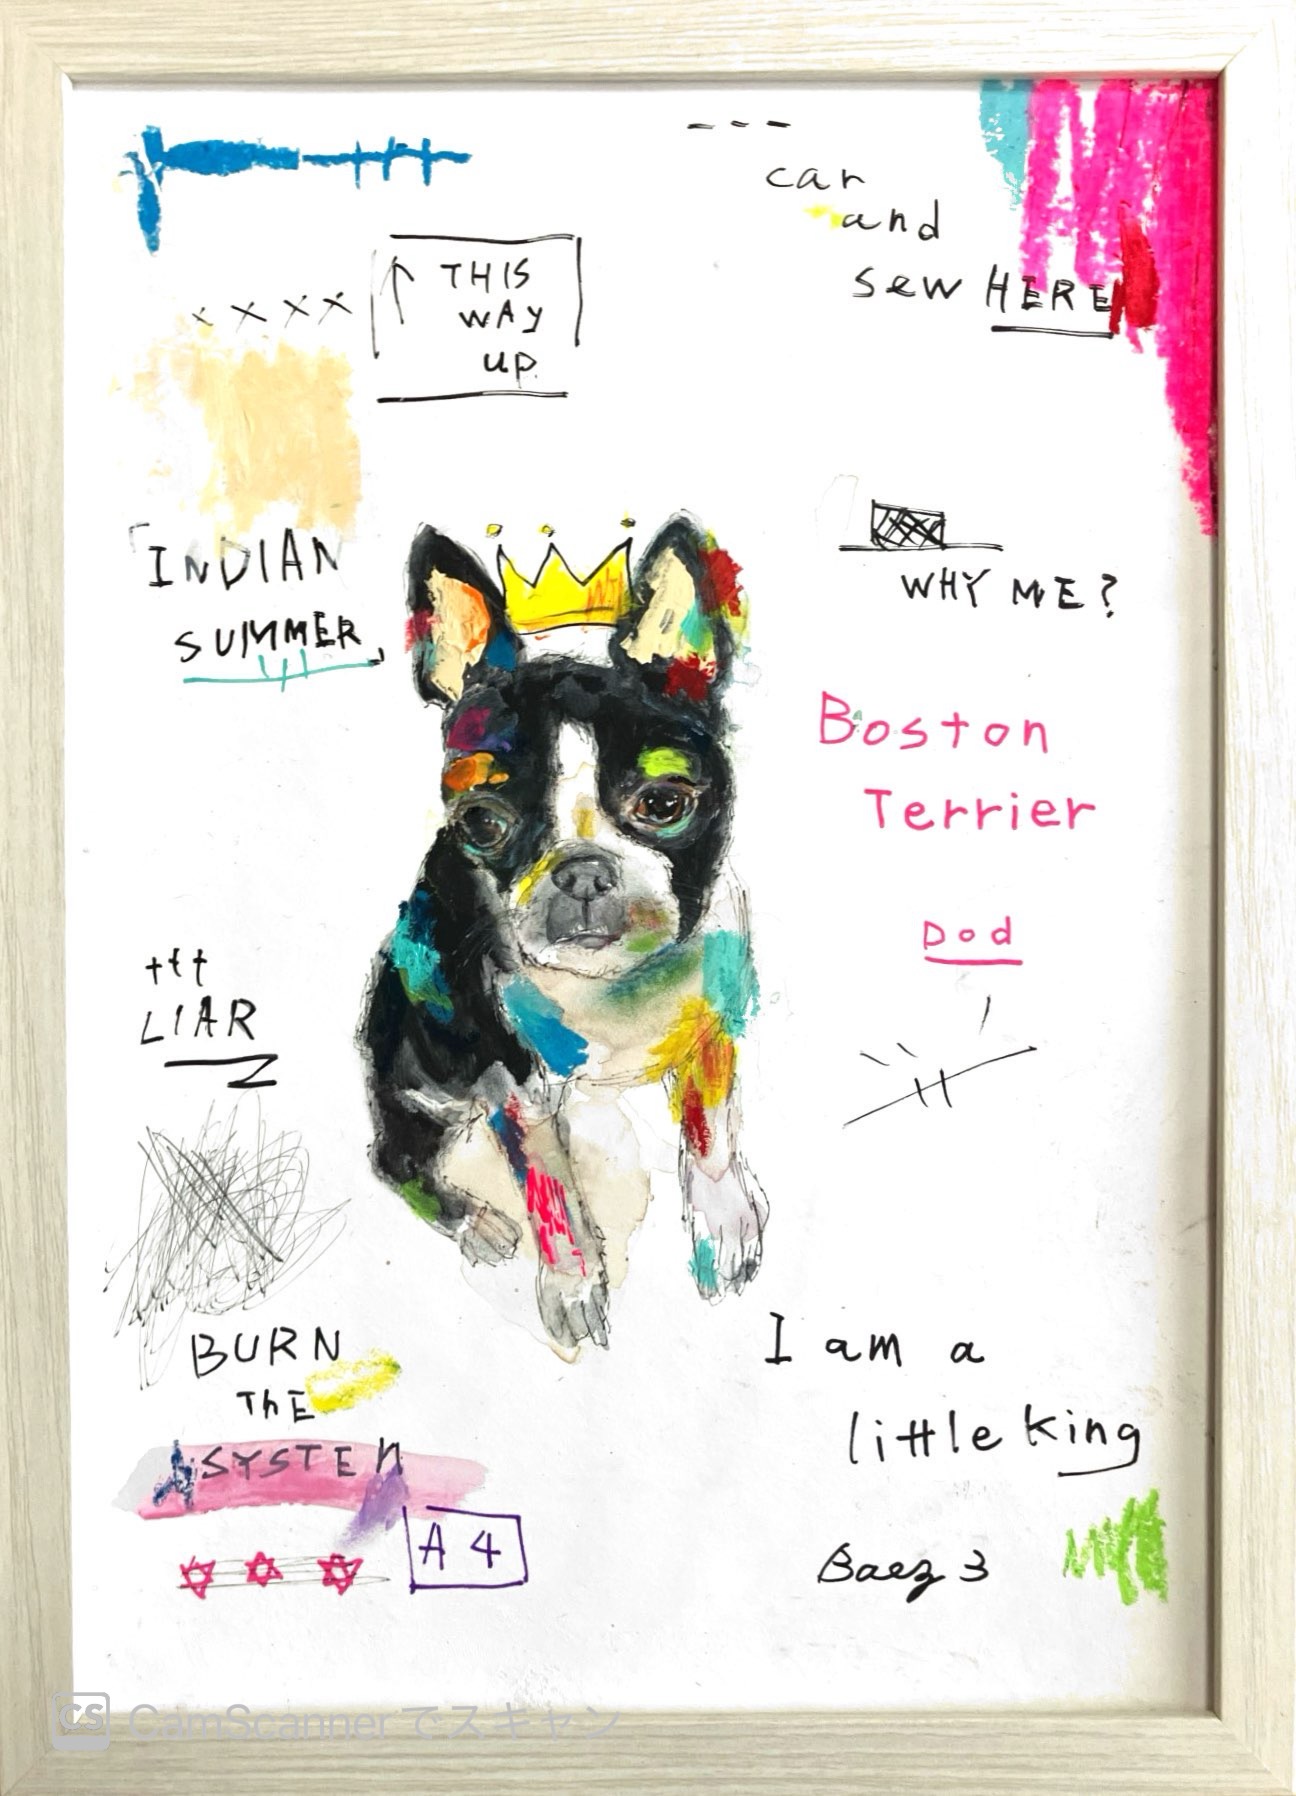 car
and
sew HERE
↑ THIS
WAY
UP.
××××
「INDIAN
SUMMER」
WHY ME?
Boston
Terrier
Dod
LIAR
BURN
ThE
SYSTEM
A4
I am a
little king
Baez 3
CS CamScannerでスキャン